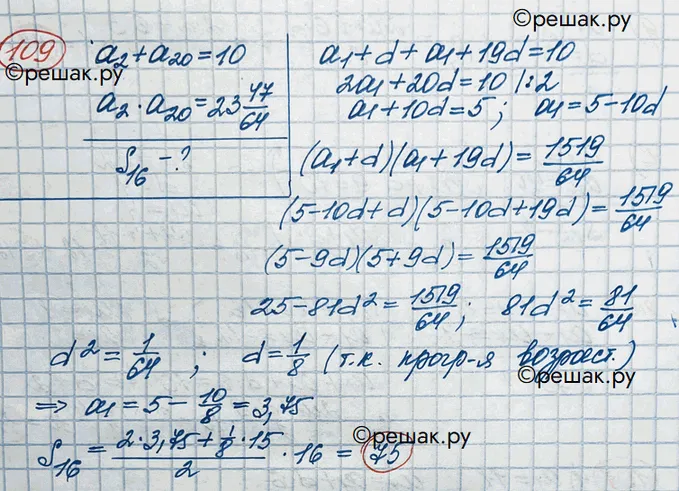 ©решак.ру
109
©решак.ру
a₂+a₂₀=10
a₂·a₂₀=23 47/64
S₁₆ – ?
a₁+d+a₁+19d=10
2a₁+20d=10 |:2
a₁+10d=5; a₁=5-10d
(a₁+d)(a₁+19d)= 1519/64
(5-10d+d)(5-10d+19d)= 1519/64
(5-9d)(5+9d)= 1519/64
25-81d²= 1519/64; 81d²= 81/64
d²= 1/64; d= 1/8 (т.к. прогр-я возраст.)
©решак.ру
⇒ a₁=5- 10/8 =3,75
S₁₆ = (2·3,75+ 1/8 ·15)/2 ·16 = 75
©решак.ру